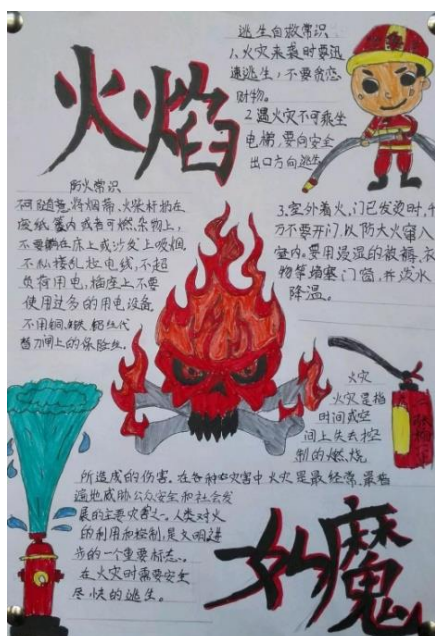 火焰
逃生自救常识
1、火灾来袭时要迅
速逃生,不要贪恋
财物。
2、遇火灾不可乘坐
电梯,要向安全
出口方向逃生
防火常识
不可随意将烟蒂、火柴杆扔在
废纸篓内或者可燃杂物上,
不要躺在床上或沙发上吸烟
不私接乱拉电线,不超
负荷用电,插座上不要
使用过多的用电设备
不用铜、铁、铝丝代
替刀闸上的保险丝。
3.室外着火,门已发烫时,千
万不要开门,以防大火窜入
室内。要用浸湿的被褥、衣
物等堵塞门窗,并泼水
降温。
火灾
火灾是指
时间或空
间上失去控
制的燃烧
所造成的伤害。在各种灾害中火灾是最经常、最普
遍地威胁公众安全和社会发
展的主要灾害之一。人类对火
的利用和控制,是文明进
步的一个重要标志。
在火灾时需要安全
尽快的逃生。
如魔